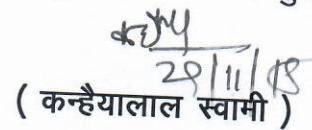 29/11/19
( कन्हैयालाल स्वामी )